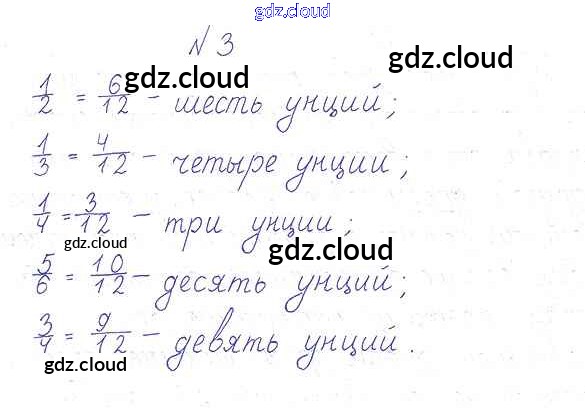 gdz.cloud
N 3
gdz.cloud
1/2 = 6/12 - шесть унций;
gdz.cloud
1/3 = 4/12 - четыре унции;
1/4 = 3/12 - три унции;
gdz.cloud gdz.cloud
5/6 = 10/12 - десять унций;
gdz.cloud
3/4 = 9/12 - девять унций.
gdz.cloud